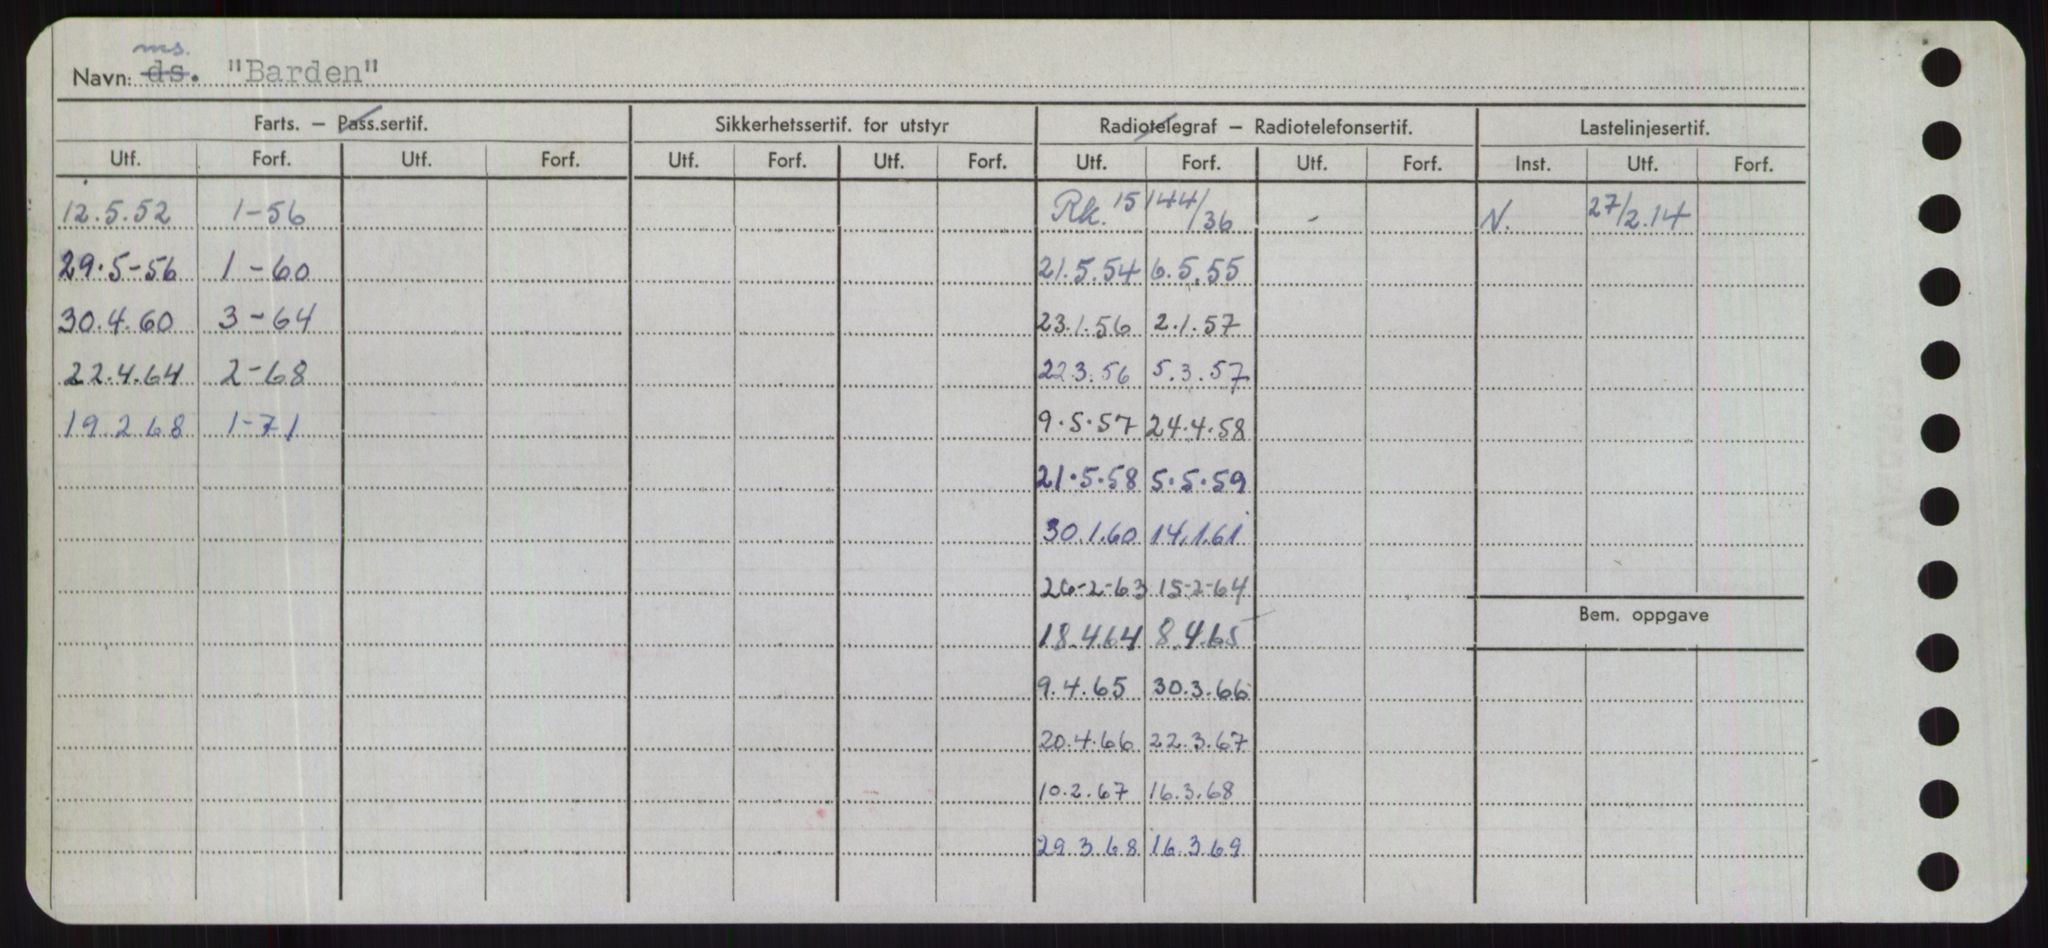 ms.
Navn: ds. "Barden"
Farts. – Pass.sertif. Sikkerhetssertif. for utstyr Radiotelegraf – Radiotelefonsertif. Lastelinjesertif.
Utf. Forf. Utf. Forf. Utf. Forf. Utf. Forf. Utf. Forf. Utf. Forf. Inst. Utf. Forf.
12.5.52 1-56 Rk. 15/44/36 - N. 27/2.14
29.5-56 1-60 21.5.54 6.5.55
30.4.60 3-64 23.1.56 2.1.57
22.4.64 2-68 22.3.56 5.3.57
19.2.68 1-71 9.5.57 24.4.58
21.5.58 5.5.59
30.1.60 14.1.61
26-2-63 15-2-64
Bem. oppgave
18.4.64 8.4.65
9.4.65 30.3.66
20.4.66 22.3.67
10.2.67 16.3.68
29.3.68 16.3.69